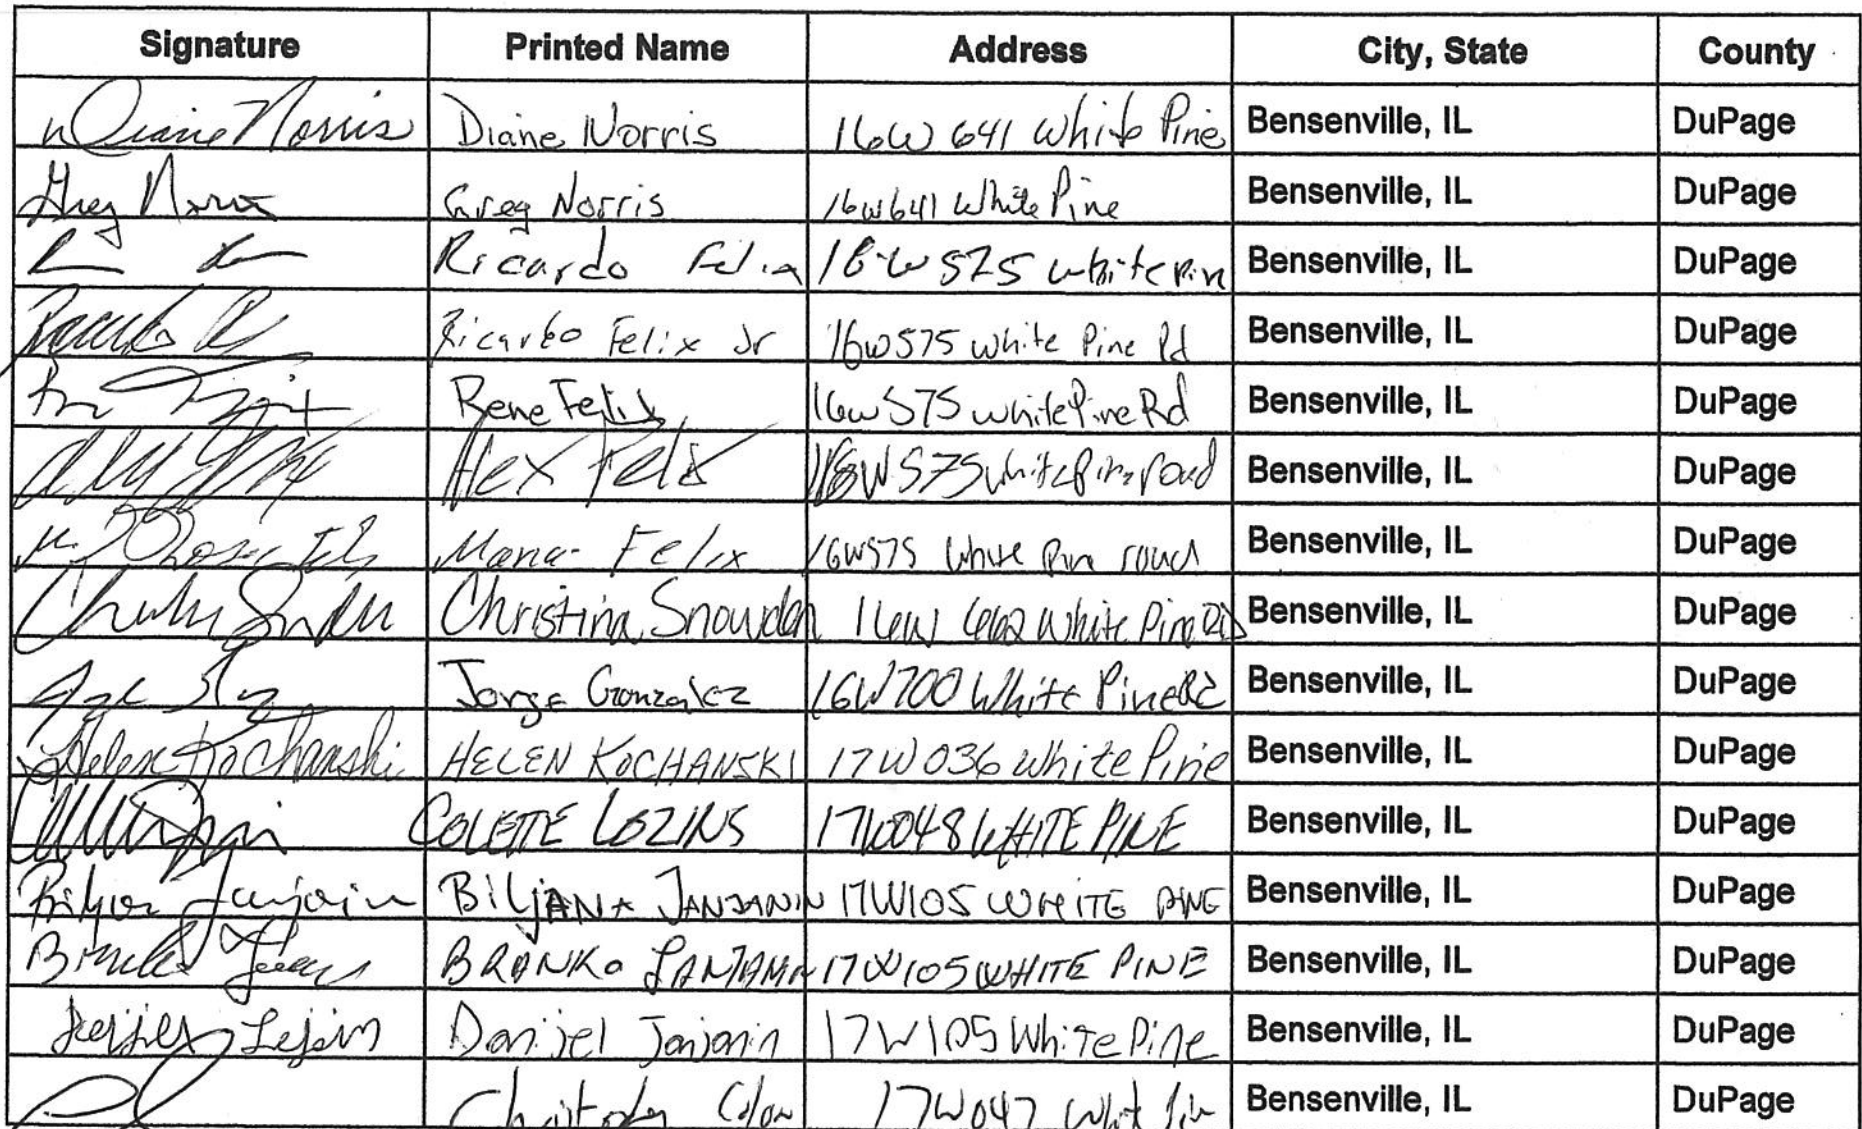 Signature Printed Name Address City, State County
Diane Norris Diane Norris 16W 641 White Pine Bensenville, IL DuPage
Greg Norris Greg Norris 16W641 White Pine Bensenville, IL DuPage
Ricardo Felix 16W575 white pin Bensenville, IL DuPage
Ricardo Felix Jr 16W575 White Pine Rd Bensenville, IL DuPage
Rene Felix 16W575 White Pine Rd Bensenville, IL DuPage
Alex Felix 16W575 White Pine road Bensenville, IL DuPage
Maria Felix 16W575 White Pine road Bensenville, IL DuPage
Christina Snowden 16W 662 White Pine Rd Bensenville, IL DuPage
Jorge Gonzalez 16W700 White Pine Rd Bensenville, IL DuPage
Helen Kochanski HELEN KOCHANSKI 17W036 White Pine Bensenville, IL DuPage
COLETTE LOZINS 17W048 WHITE PINE Bensenville, IL DuPage
BILJANA JANJANIN 17W105 WHITE PINE Bensenville, IL DuPage
BRANKO 17W105 WHITE PINE Bensenville, IL DuPage
Danijel Janjanin 17W105 White Pine Bensenville, IL DuPage
Christopher Colon 17W047 Bensenville, IL DuPage